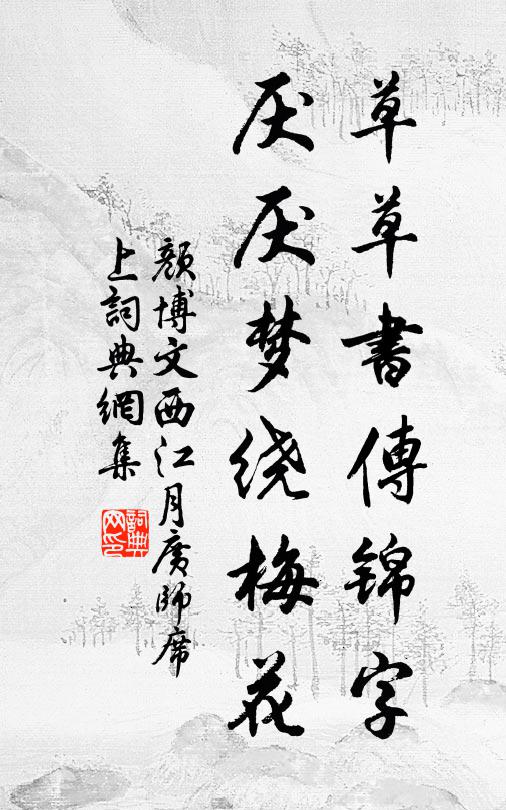 草草書傳錦字
厌厌梦绕梅花
顏博文西江月廣師席
上詞典網集
詞典网印